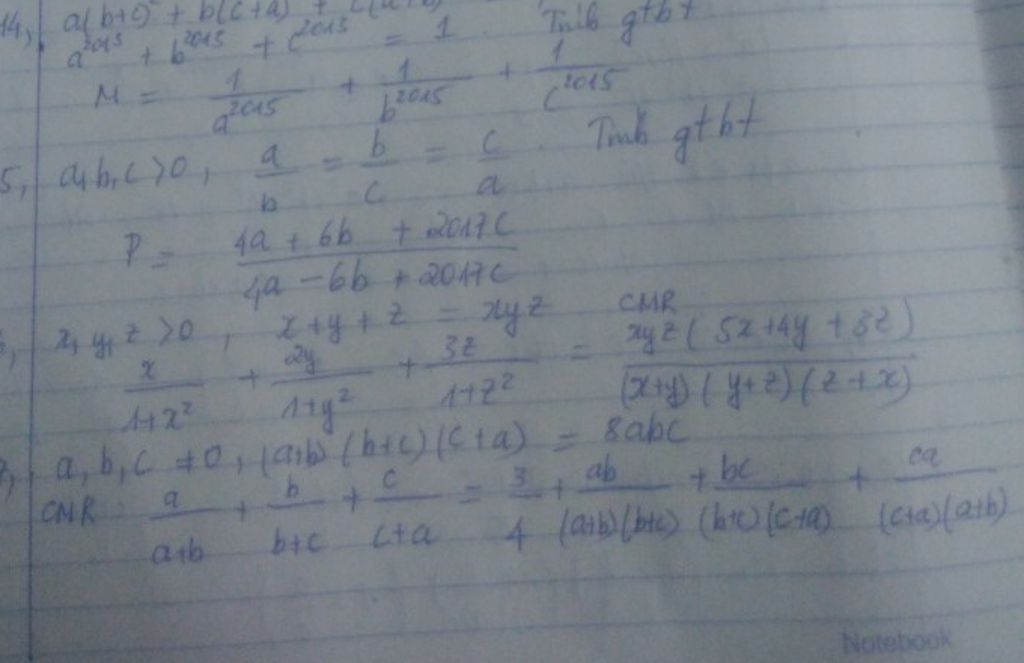 14, a(b+c)² + b(c+a) +
a²⁰¹⁵ + b²⁰¹⁵ + c²⁰¹⁵ = 1. Tính gtbt
M = 1/a²⁰¹⁵ + 1/b²⁰¹⁵ + 1/c²⁰¹⁵
5, a,b,c >0, a/b = b/c = c/a. Tính gtbt
P = (4a + 6b + 2017c)/(4a - 6b + 2017c)
x, y, z >0, x+y+z = xyz CMR
x/(1+x²) + 2y/(1+y²) + 3z/(1+z²) = xyz(5x+4y+3z)/((x+y)(y+z)(z+x))
7, a, b, c ≠0, (a+b)(b+c)(c+a) = 8abc
CMR a/(a+b) + b/(b+c) + c/(c+a) = 3/4 + ab/((a+b)(b+c)) + bc/((b+c)(c+a)) + ca/((c+a)(a+b))
Notebook